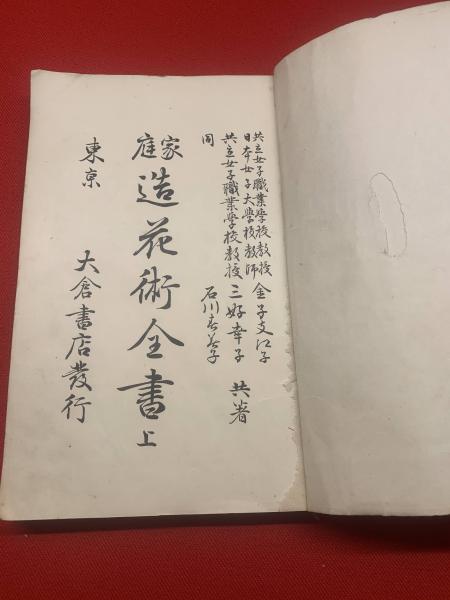 共立女子職業學校教授 金子支江子
日本女子大學校教師
共立女子職業學校教授 三好幸子 共著
同 石川
家庭 造花術全書 上
東京 大倉書店發行